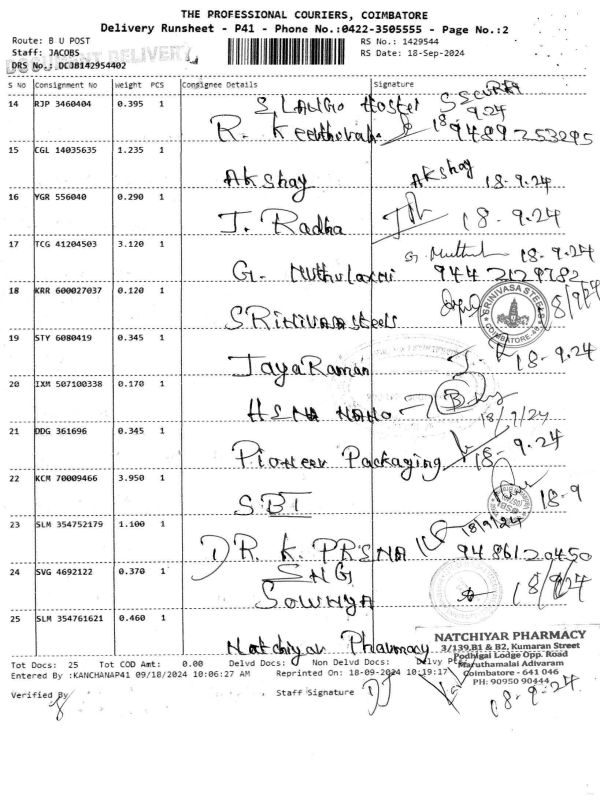 THE PROFESSIONAL COURIERS, COIMBATORE
Delivery Runsheet - P41 - Phone No.:0422-3505555 - Page No.:2
Route: B U POST
RS No.: 1429544
Staff: JACOBS
RS Date: 18-Sep-2024
DOCUMENT DELIVERY
DRS No.: DCJB142954402
S No Consignment No Weight PCS Consignee Details Signature
14 RJP 3460404 0.395 1 Hostel 9.24
R. 18. 9489253295
15 CGL 14035635 1.235 1
Akshay Akshay 18-9.24
16 YGR 556040 0.290 1
J. Radha 18-9.24
17 TCG 41204503 3.120 1 G. 18-9.24
G. Muthulaxmi
18 KRR 600027037 0.120 1 SRINIVASA STEELS COIMBATORE 18/9/24
SRinivasa steels
19 STY 6080419 0.345 1
JayaRaman J. 18-9.24
20 IXM 507100338 0.170 1
18/9/24
21 DDG 361696 0.345 1
Pioneer Packaging 18-9.24
22 KCM 70009466 3.950 1
SBI 18-9
23 SLM 354752179 1.100 1 18/9/24
DR. K. 9486120450
24 SVG 4692122 0.370 1 SNG
Sowmya 18/9/24
25 SLM 354761621 0.460 1
Natchiyar Pharmacy
NATCHIYAR PHARMACY
3/139,B1 & B2, Kumaran Street
Podhigai Lodge Opp. Road
Maruthamalai Adivaram
Coimbatore - 641 046
PH: 90950 90444
Tot Docs: 25 Tot COD Amt: 0.00 Delvd Docs: Non Delvd Docs:
Entered By :KANCHANAP41 09/18/2024 10:06:27 AM Reprinted On: 18-09-2024 10:19:17
Verified By Staff Signature
18-9-24